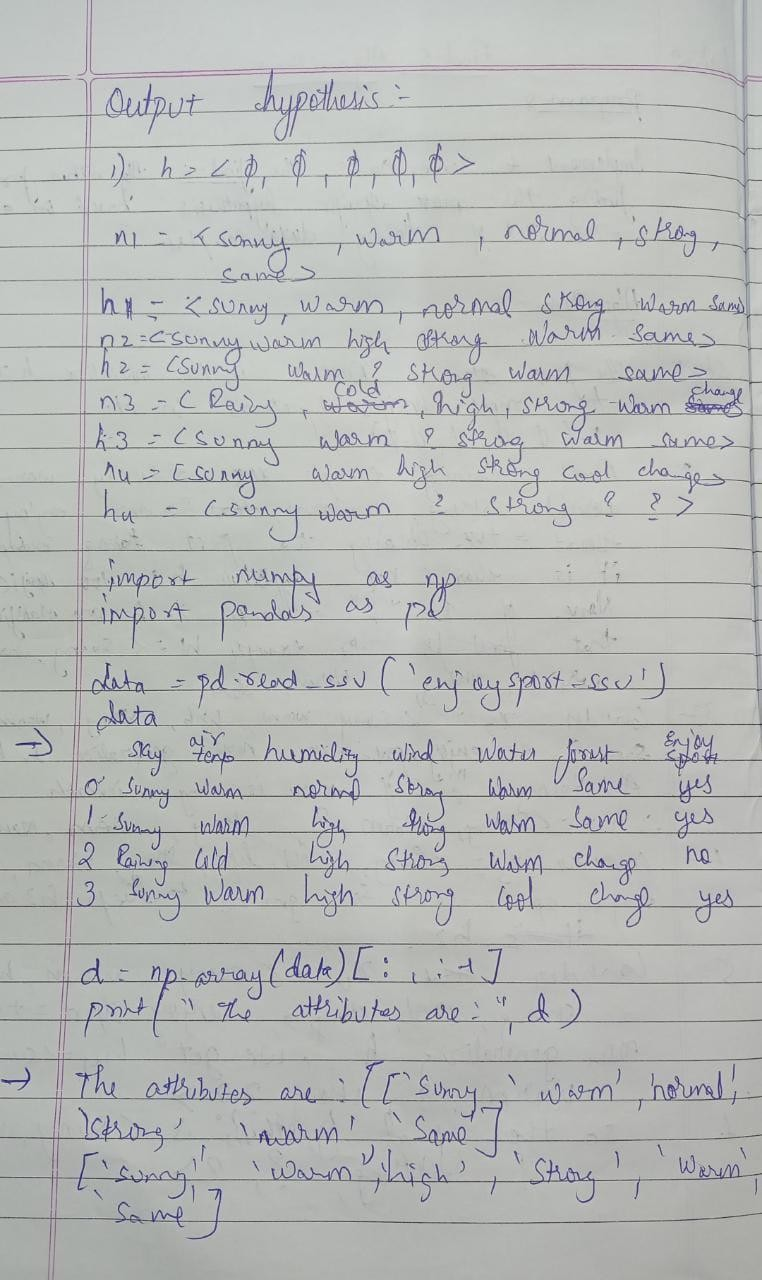 Output hypothesis :-
1) h = < ϕ, ϕ, ϕ, ϕ, ϕ >
n1 = < sunny , warm , normal , strong ,
same >
h1 = < sunny, warm, normal strong warm same
n2 = < sunny warm high strong warm same >
h2 = ( sunny warm ? strong warm same >
cold change
n3 = ( Rainy, warm, high, strong warm same
h3 = ( sunny warm ? strong warm same >
n4 = [ sunny warm high strong cool change >
h4 = ( sunny warm ? strong ? ? >
import numpy as np
import pandas as pd
data = pd.read_ssv ('enjoysport_ssv')
data
→ sky air temp humidity wind water forest Enjoy sport
0 sunny warm normal strong warm same yes
1 sunny warm high strong warm same yes
2 Raining cold high strong warm change no
3 sunny warm high strong cool change yes
d = np.array(data)[:, :-1]
print(" The attributes are : ", d)
→ The attributes are : [['sunny', 'warm', 'normal',
'strong', 'warm' 'same']
['sunny' 'warm', 'high', 'strong', 'warm',
'same']